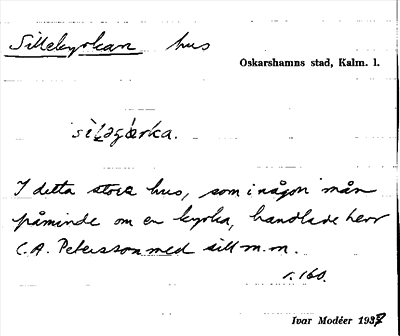 Sillekyrkan hus
Oskarshamns stad, Kalm. l.
I detta stora hus, som i någon mån
påminde om en kyrka, handlade herr
C.A. Petersson med sill m.m.
r. 160.
Ivar Modéer 1937